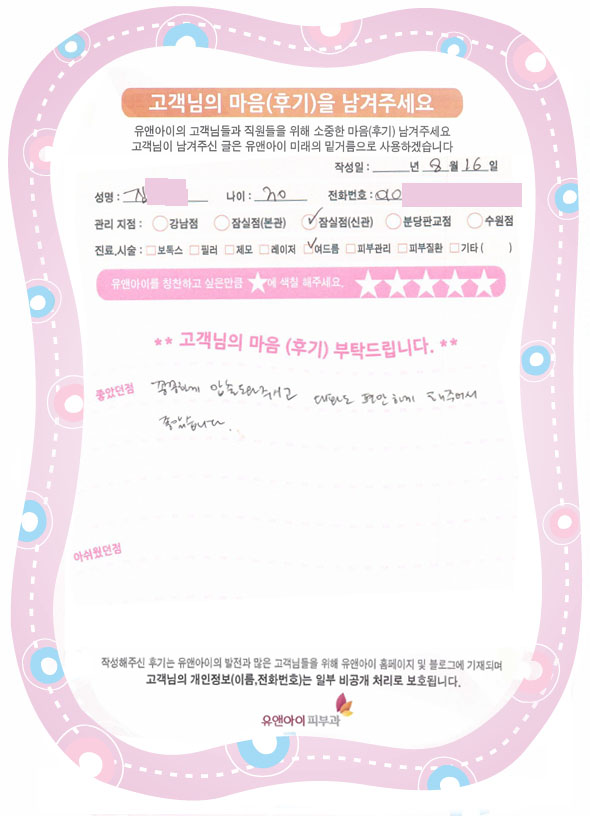 고객님의 마음(후기)을 남겨주세요
유앤아이의 고객님들과 직원들을 위해 소중한 마음(후기) 남겨주세요
고객님이 남겨주신 글은 유앤아이 미래의 밑거름으로 사용하겠습니다
작성일 : ______년 8 월 16 일
성명 : 김 나이 : 20 전화번호 : 010
관리 지점 : 강남점 잠실점(본관) 잠실점(신관) 분당판교점 수원점
진료,시술 : 보톡스 필러 제모 레이저 여드름 피부관리 피부질환 기타 ( )
유앤아이를 칭찬하고 싶은만큼 ★에 색칠 해주세요. ★★★★★
** 고객님의 마음 (후기) 부탁드립니다. **
좋았던점 꼼꼼하게 압출도와주시고 대화도 편안하게 해주어서
좋았습니다.
아쉬웠던점
작성해주신 후기는 유앤아이의 발전과 많은 고객님들을 위해 유앤아이 홈페이지 및 블로그에 기재되며
고객님의 개인정보(이름,전화번호)는 일부 비공개 처리로 보호됩니다.
유앤아이피부과